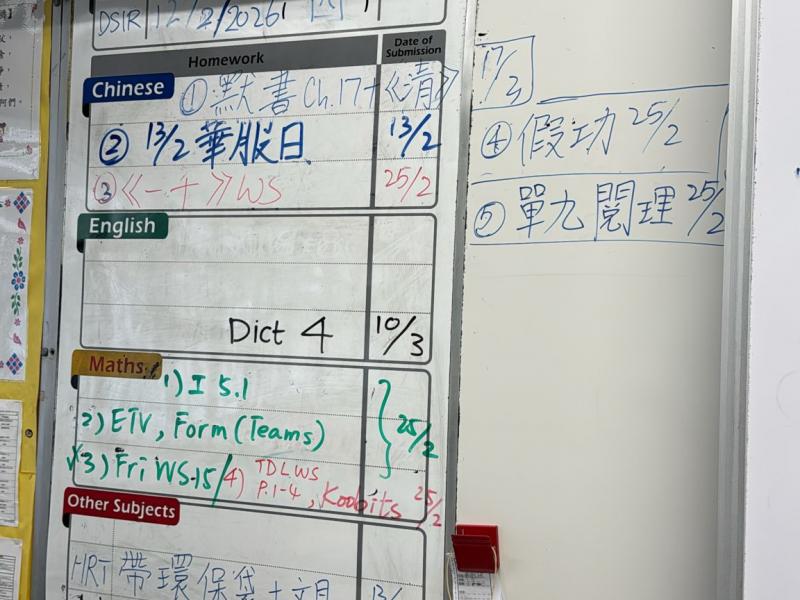 DSIR 12/2/2026
Homework Date of Submission
Chinese ① 默書 Ch.17+《清》 17/3
② 13/2 華服日 13/2
③《一十》WS 25/2
④ 假功 25/2
⑤ 單九 閱理 25/2
English
Dict 4 10/3
Maths 1) I 5.1
2) ETV, Form (Teams) 25/2
3) Fri WS 15/ 4) TDL WS P.1-4, Koobits 25/2
Other Subjects
HRT 帶環保袋+文具 13/